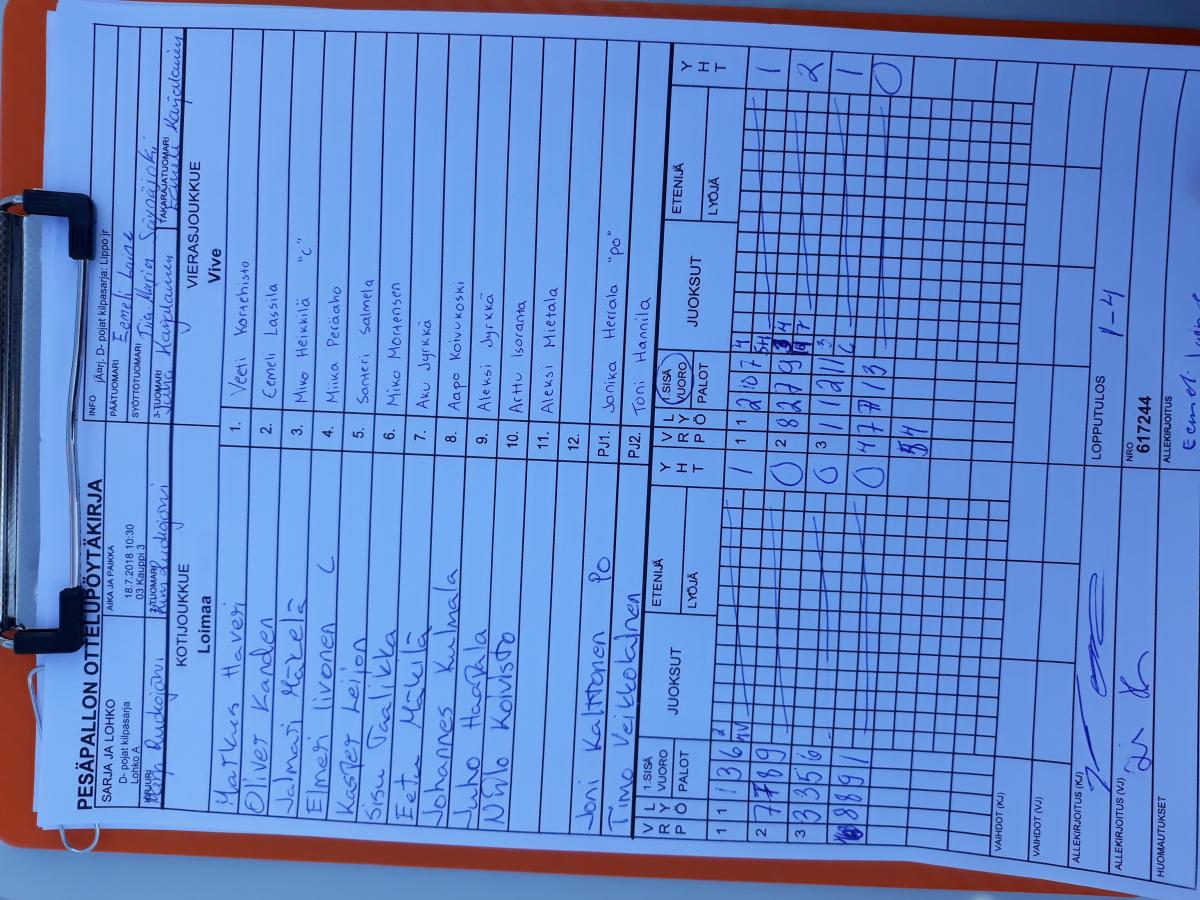 PESÄPALLON OTTELUPÖYTÄKIRJA
SARJA JA LOHKO
D- pojat kilpasarja
Lohko A
AIKA JA PAIKKA
18.7.2018 10:30
03 Kauppi 3
INFO jÄrj. D- pojat kilpasarja: Lippo jr
PÄÄTUOMARI Eemeli Laine
SYÖTTÖTUOMARI
KIRJURI
2-TUOMARI
3-TUOMARI Juha Karjalainen
TAKARAJATUOMARI Eemeli Karjalainen
KOTIJOUKKUE
Loimaa
VIERASJOUKKUE
Vive
Markus Haveri 1. Veeti Kortehisto
Oliver Kanden 2. Eemeli Lassila
Jalmari Mäkelä 3. Miko Heikkilä "C"
Elmeri Iivonen C 4. Miika Peräaho
Kasper Leijon 5. Santeri Salmela
Sisu Taalikka 6. Miko Mortensen
Eetu Mäkilä 7. Aku Jyrkkä
Johannes Kulmala 8. Aapo Koivukoski
Juho Haapala 9. Aleksi Jyrkkä
Niilo Koivisto 10. Arttu Isoranta
11. Aleksi Mietala
12.
Joni Kalttonen PO PJ1. Janika Herrala "PO"
Timo Veikkolainen PJ2. Toni Hannila
V R P L Y Ö 1.SISÄ VUORO PALOT JUOKSUT ETENIJÄ LYÖJÄ Y H T
V R P L Y Ö 1.SISÄ VUORO PALOT JUOKSUT ETENIJÄ LYÖJÄ Y H T
1 1 1 3 6 1
2 7 7 8 9 0
3 3 3 5 6 0
8 8 9 1 0
1 1 2 10 7 1
2 8 2 7 9 2
3 1 1 2 11 1
4 7 7 13 0
VAIHDOT (KJ)
VAIHDOT (VJ)
LOPPUTULOS 1-4
ALLEKIRJOITUS (KJ)
ALLEKIRJOITUS (VJ)
NRO
617244
HUOMAUTUKSET
ALLEKIRJOITUS
Eemeli Laine